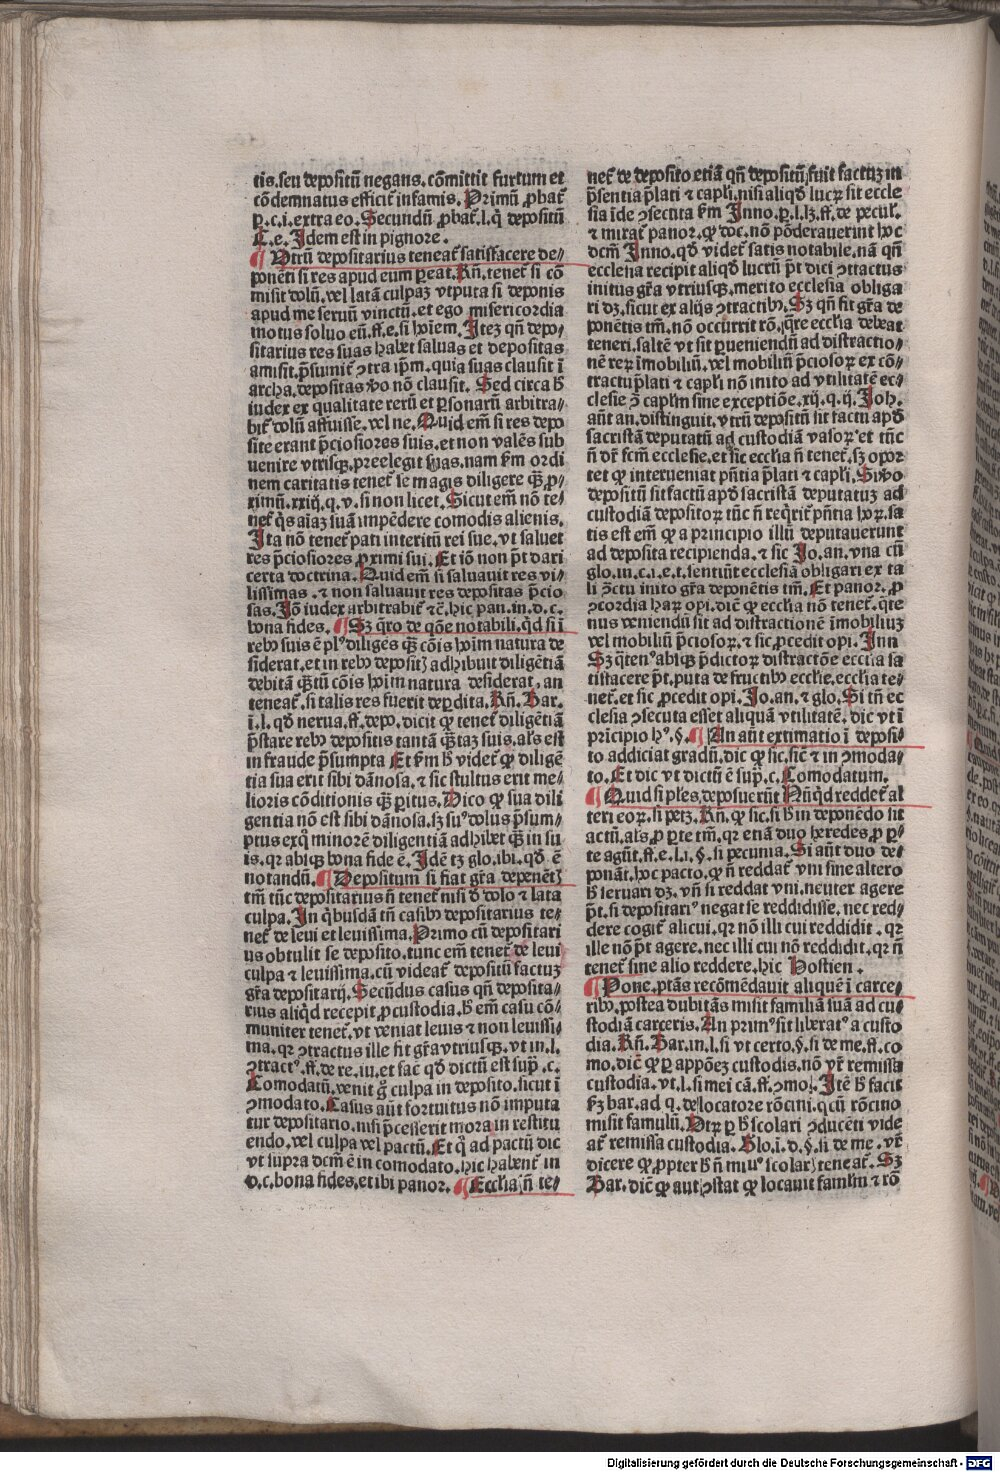 tis.seu depositū negans.cōmittit furtum et
cōdemnatus efficit᷑ infamis. Primū ꝓbat᷑
ꝑ.c.i.extra eo. Secundū ꝓbat᷑.l.q̄ depositū
C.e. Idem est in pignore.
¶ Vtrū depositarius teneat᷑ satisfacere de⸗
ponēti si res apud eum ꝑeat. Rn̄.tenet᷑ si cō
misit dolū.vel latā culpaꝫ vtputa si deponis
apud me seruū vinctū.et ego misericordia
motus soluo eū.ff.e.si hoīem. Iteꝫ qn̄ depo⸗
sitarius res suas habet saluas et depositas
amisit.p̄sumit᷑ ꝯtra ip̄m.quia suas clausit ī
archa.depositas vo nō clausit. Sed circa h̄
iudex ex qualitate rerū et ꝑsonarū arbitra⸗
bit᷑ dolū affuisse.vel ne. Quid em̄ si res depo
site erant p̄ciosiores suis.et non valēs sub
uenire vtrisqꝫ.preelegit suas.nam ẜm ordi
nem caritatis tenet᷑ se magis diligere qꝫ̄ ꝓ⸗
ximū.xxiij.q.v.si non licet. Sicut em̄ nō te⸗
net᷑ q̇s aīaꝫ suā impēdere comodis alienis.
Ita nō tenet᷑ pati interitū rei sue.vt saluet
res p̄ciosiores ꝓximi sui. Et iō non p̄t dari
certa doctrina. Quid em̄ si saluauit res vi⸗
lissimas.⁊ non saluauit res depositas p̄cio
sas. Iō iudex arbitrabit᷑ ⁊c̄.hic pan.in.d.c.
bona fides. ¶ Sꝫ q̄ro de qōne notabili.qd si ī
rebꝰ suis ē plꝰ diliges qꝫ̄ cōis hoīm natura de
siderat.et in rebꝰ depositꝭ adhibuit diligētiā
debitā qꝫ̄tū cōis hoīm natura desiderat.an
teneat᷑.si talis res fuerit deꝑdita. Rn̄. Bar.
ī.l.qd nerua.ff.depo.dicit ꝙ tenet᷑ diligētiā
p̄stare rebꝰ depositis tantā qꝫ̄taꝫ suis.als est
in fraude p̄sumpta Et ẜm h̄ videt᷑ ꝙ dilige
tia sua erit sibi dānosa.⁊ sic stultus erit me⸗
lioris cōditionis qꝫ̄ ꝑitus. Dico ꝙ sua dili
gentia nō est sibi dānosa.sꝫ suꝰ dolus p̄sum⸗
ptus exq̇ minorē diligentiā adhibet qꝫ̄ in su
is.qꝛ abiqꝫ bona fide ē. Idē tꝫ glo.ibi.qd ē
notandū. ¶ Depositum si fiat gr̄a deponētꝭ
tm̄ tūc depositarius n̄ tenet᷑ nisi d̄ dolo ⁊ lata
culpa. In q̇busdā tn̄ casibꝰ depositarius te⸗
net᷑ de leui et leuissima. Primo cū depositari
us obtulit se deposito.tunc em̄ tenet᷑ de leui
culpa ⁊ leuissima.cū videat᷑ depositū factuꝫ
gr̄a depositarij. Secūdus casus qn̄ deposita⸗
rius aliq̇d recepit ꝓ custodia.h̄ em̄ casu cō⸗
muniter tenet᷑.vt veniat leuis ⁊ non leuissi⸗
ma.qꝛ ꝯtractus ille fit gr̄a vtriusqꝫ.vt in.l.
ꝯtractꝰ.ff.de re.iu.et fac̄ qd dictū est sup̄.c.
Comodatū.venit g̊ culpa in deposito.sicut ī
ꝯmodato. Casus aūt fortuitus nō imputa
tur depositario.nisi p̄cesserit mora in restitu
endo.vel culpa vel pactū. Et q̄ ad pactū dic
vt supra dcm̄ ē in comodato.hic habent᷑ in
d.c.bona fides.et ibi panor. ¶ Ecclia n̄ te⸗
net᷑ de deposito.etiā qn̄ depositū fuit factuꝫ in
p̄sentia p̄lati ⁊ capl̄i.nisi aliqd lucꝝ sit eccle
sia īde ꝯsecuta ẜm Inno.ꝑ.l.lꝫ.ff.de pecul᷑.
⁊ mirat᷑ panor.ꝙ doc.nō pōderauerint hoc
dcm̄ Inno.qd videt᷑ satis notabile.nā qn̄
ecclesia recipit aliqd lucrū p̄t dici ꝯtractus
initus gr̄a vtriusqꝫ.merito ecclesia obliga
ri dꝫ.sicut ex alijs ꝯtractibꝰ. Sꝫ qn̄ fit gr̄a de
ponētis tm̄.nō occurrit rō.q̄re ecclia debeat
teneri.saltē vt sit ꝑueniendū ad distractio⸗
nē reꝝ īmobiliū.vel mobiliū p̄ciosoꝝ ex cō⸗
tractu p̄lati ⁊ capl̄i nō inito ad vtilitatē ec⸗
clesie ꝫ capl̄m sine exceptiōe.xij.q.ij. Joh.
aūt an.distinguit.vtrū depositū sit factū apd
sacristā deputatū ad custodiā vasoꝝ et tūc
n̄ dr̄ fcm̄ ecclesie.et sic ecclia n̄ tenet᷑.sꝫ opor
tet ꝙ interueniat pn̄tia p̄lati ⁊ capl̄i. Si vo
depositū sit factū apd sacristā deputatuꝫ ad
custodiā depositoꝝ tūc n̄ req̇rit᷑ pn̄tia hoꝝ.sa
tis est em̄ ꝙ a principio illū deputauerunt
ad deposita recipienda.⁊ sic Jo.an.vna cū
glo.in.c.i.e.t.sentiūt ecclesiā obligari ex ta
li ꝯctu inito gr̄a deponētis tm̄. Et panor.ꝓ
ꝯcordia haꝝ opi.dic̄ ꝙ ecclia nō tenet᷑.qte
nus veniendū sit ad distractionē īmobiliuꝫ
vel mobiliū p̄ciosoꝝ.⁊ sic ꝓcedit opi. Inn
Sꝫ q̄tenꝰ absqꝫ p̄dictoꝝ distractōe ecclia sa
tisfacere p̄t.puta de fructibꝰ ecclie.ecclia te⸗
net᷑.et sic ꝓcedit opi. Jo.an.⁊ glo. Si tn̄ ec
clesia ꝯsecuta esset aliquā vtilitatē.dic vt ī
prīcipio hꝰ.§. ¶ An aūt extimatio ī deposi⸗
to addiciat gradū.dic ꝙ sic.sic̄ ⁊ in ꝯmoda⸗
to. Et dic vt dictū ē sup̄.c. Comodatum.
¶ Quid si pl̄es.deposuerūt Nūqd reddet᷑ al
teri eoꝝ.si petꝫ. Rn̄.ꝙ sic.si h̄ in deponēdo sit
actū.als ꝓ ꝑte tm̄.qꝛ etiā duo heredes ꝓ ꝑ⸗
te agūt.ff.e.l.i.§.si pecunia. Si aūt duo de⸗
ponāt.hoc pacto.ꝙ n̄ reddat᷑ vni sine altero
h̄ seruari dꝫ.vn̄ si reddat vni.neuter agere
p̄t.si depositariꝰ negat se reddidisse.nec red⸗
dere cogit᷑ alicui.qꝛ nō illi cui reddidit.qꝛ
ille nō p̄t agere.nec illi cui nō reddidit.qꝛ n̄
tenet᷑ sine alio reddere.hic Hostien.
¶ Pone.ptās recōmēdauit aliquē ī carce⸗
ribꝰ.postea dubitās misit familiā suā ad cu⸗
stodiā carceris. An primꝰ sit liberatꝰ a custo
dia. Rn̄. Bar.in.l.si vt certo.§.si de me.ff.co⸗
mo.dic̄ ꝙ ꝑ appōeꝫ custodis.nō vr̄ remissa
custodia.vt.l.si mei cā.ff.ꝯmo. Itē h̄ facit
ẜꝫ bar.ad q.de locatore rōcini.qcū rōcino
misit famulū. Vtꝝ ꝑ h̄ scolari ꝯducēti vide
at᷑ remissa custodia. Glo.ī.d.§.si de me.vr̄
dicere ꝙ ꝓpter h̄ n̄ miꝰ scolarꝭ teneat᷑. Sꝫ
Bar.dic̄ ꝙ aut ꝯstat ꝙ locauit famlm̄ ⁊ rō
Digitalisierung gefördert durch die Deutsche Forschungsgemeinschaft - DFG